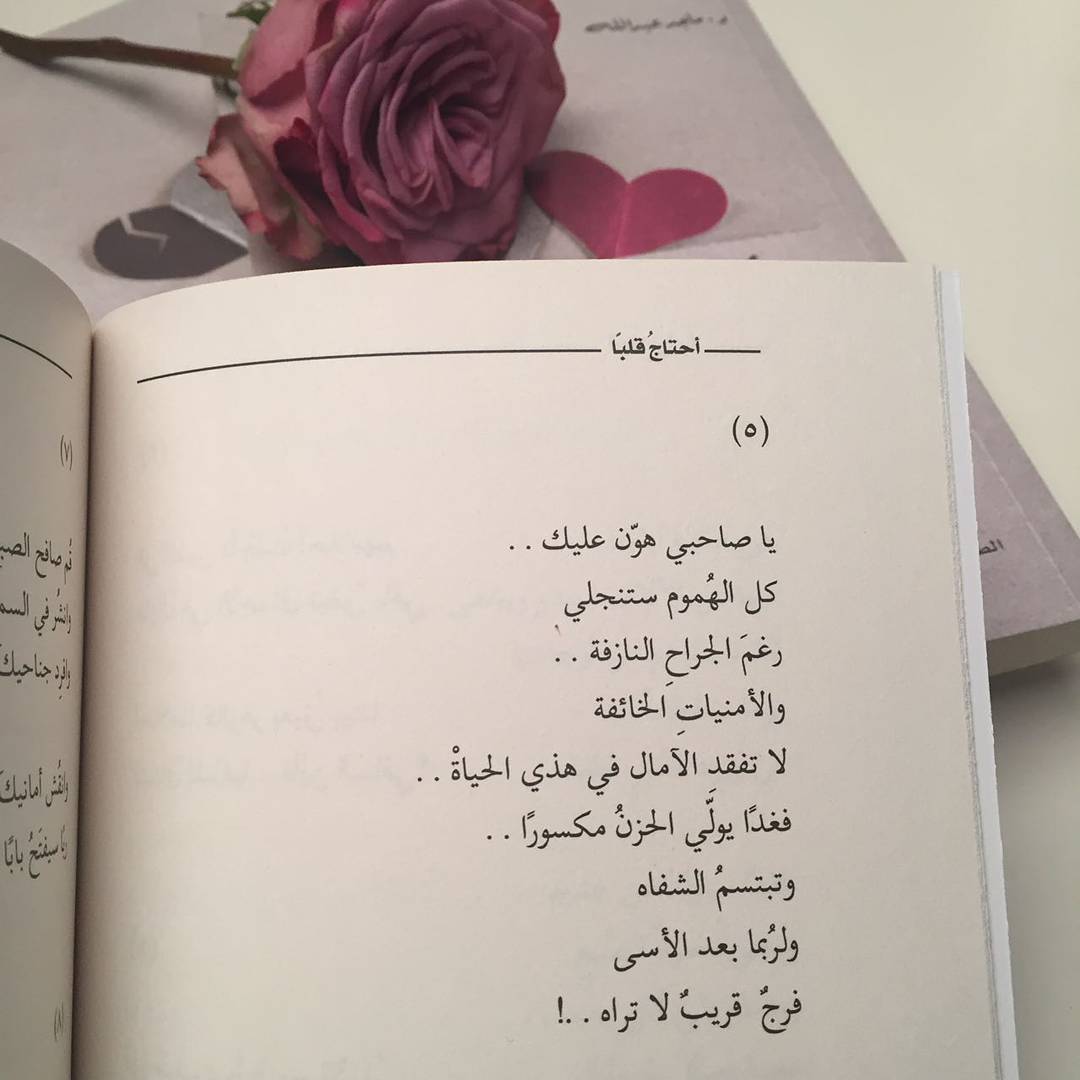 د. ماجد عبدالله
أحتاجُ قلبًا
(٥)
يا صاحبي هوّن عليك . .
كل الهُموم ستنجلي
رغمَ الجراحِ النازفة . .
والأمنياتِ الخائفة
لا تفقدِ الآمال في هذي الحياةْ . .
فغدًا يولّي الحزنُ مكسورًا . .
وتبتسمُ الشفاه
ولرُبما بعد الأسى
فرجٌ قريبٌ لا تراه . .!
(٧)
قُم صافح
وانشُر في
وافرِد جناحيك
وانقُش أمانيك
ربّا سيفتَحُ بابًا
(٨)